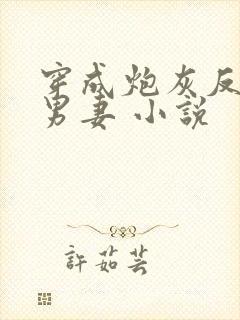 穿成炮灰反
男妻 小說
許茹芸